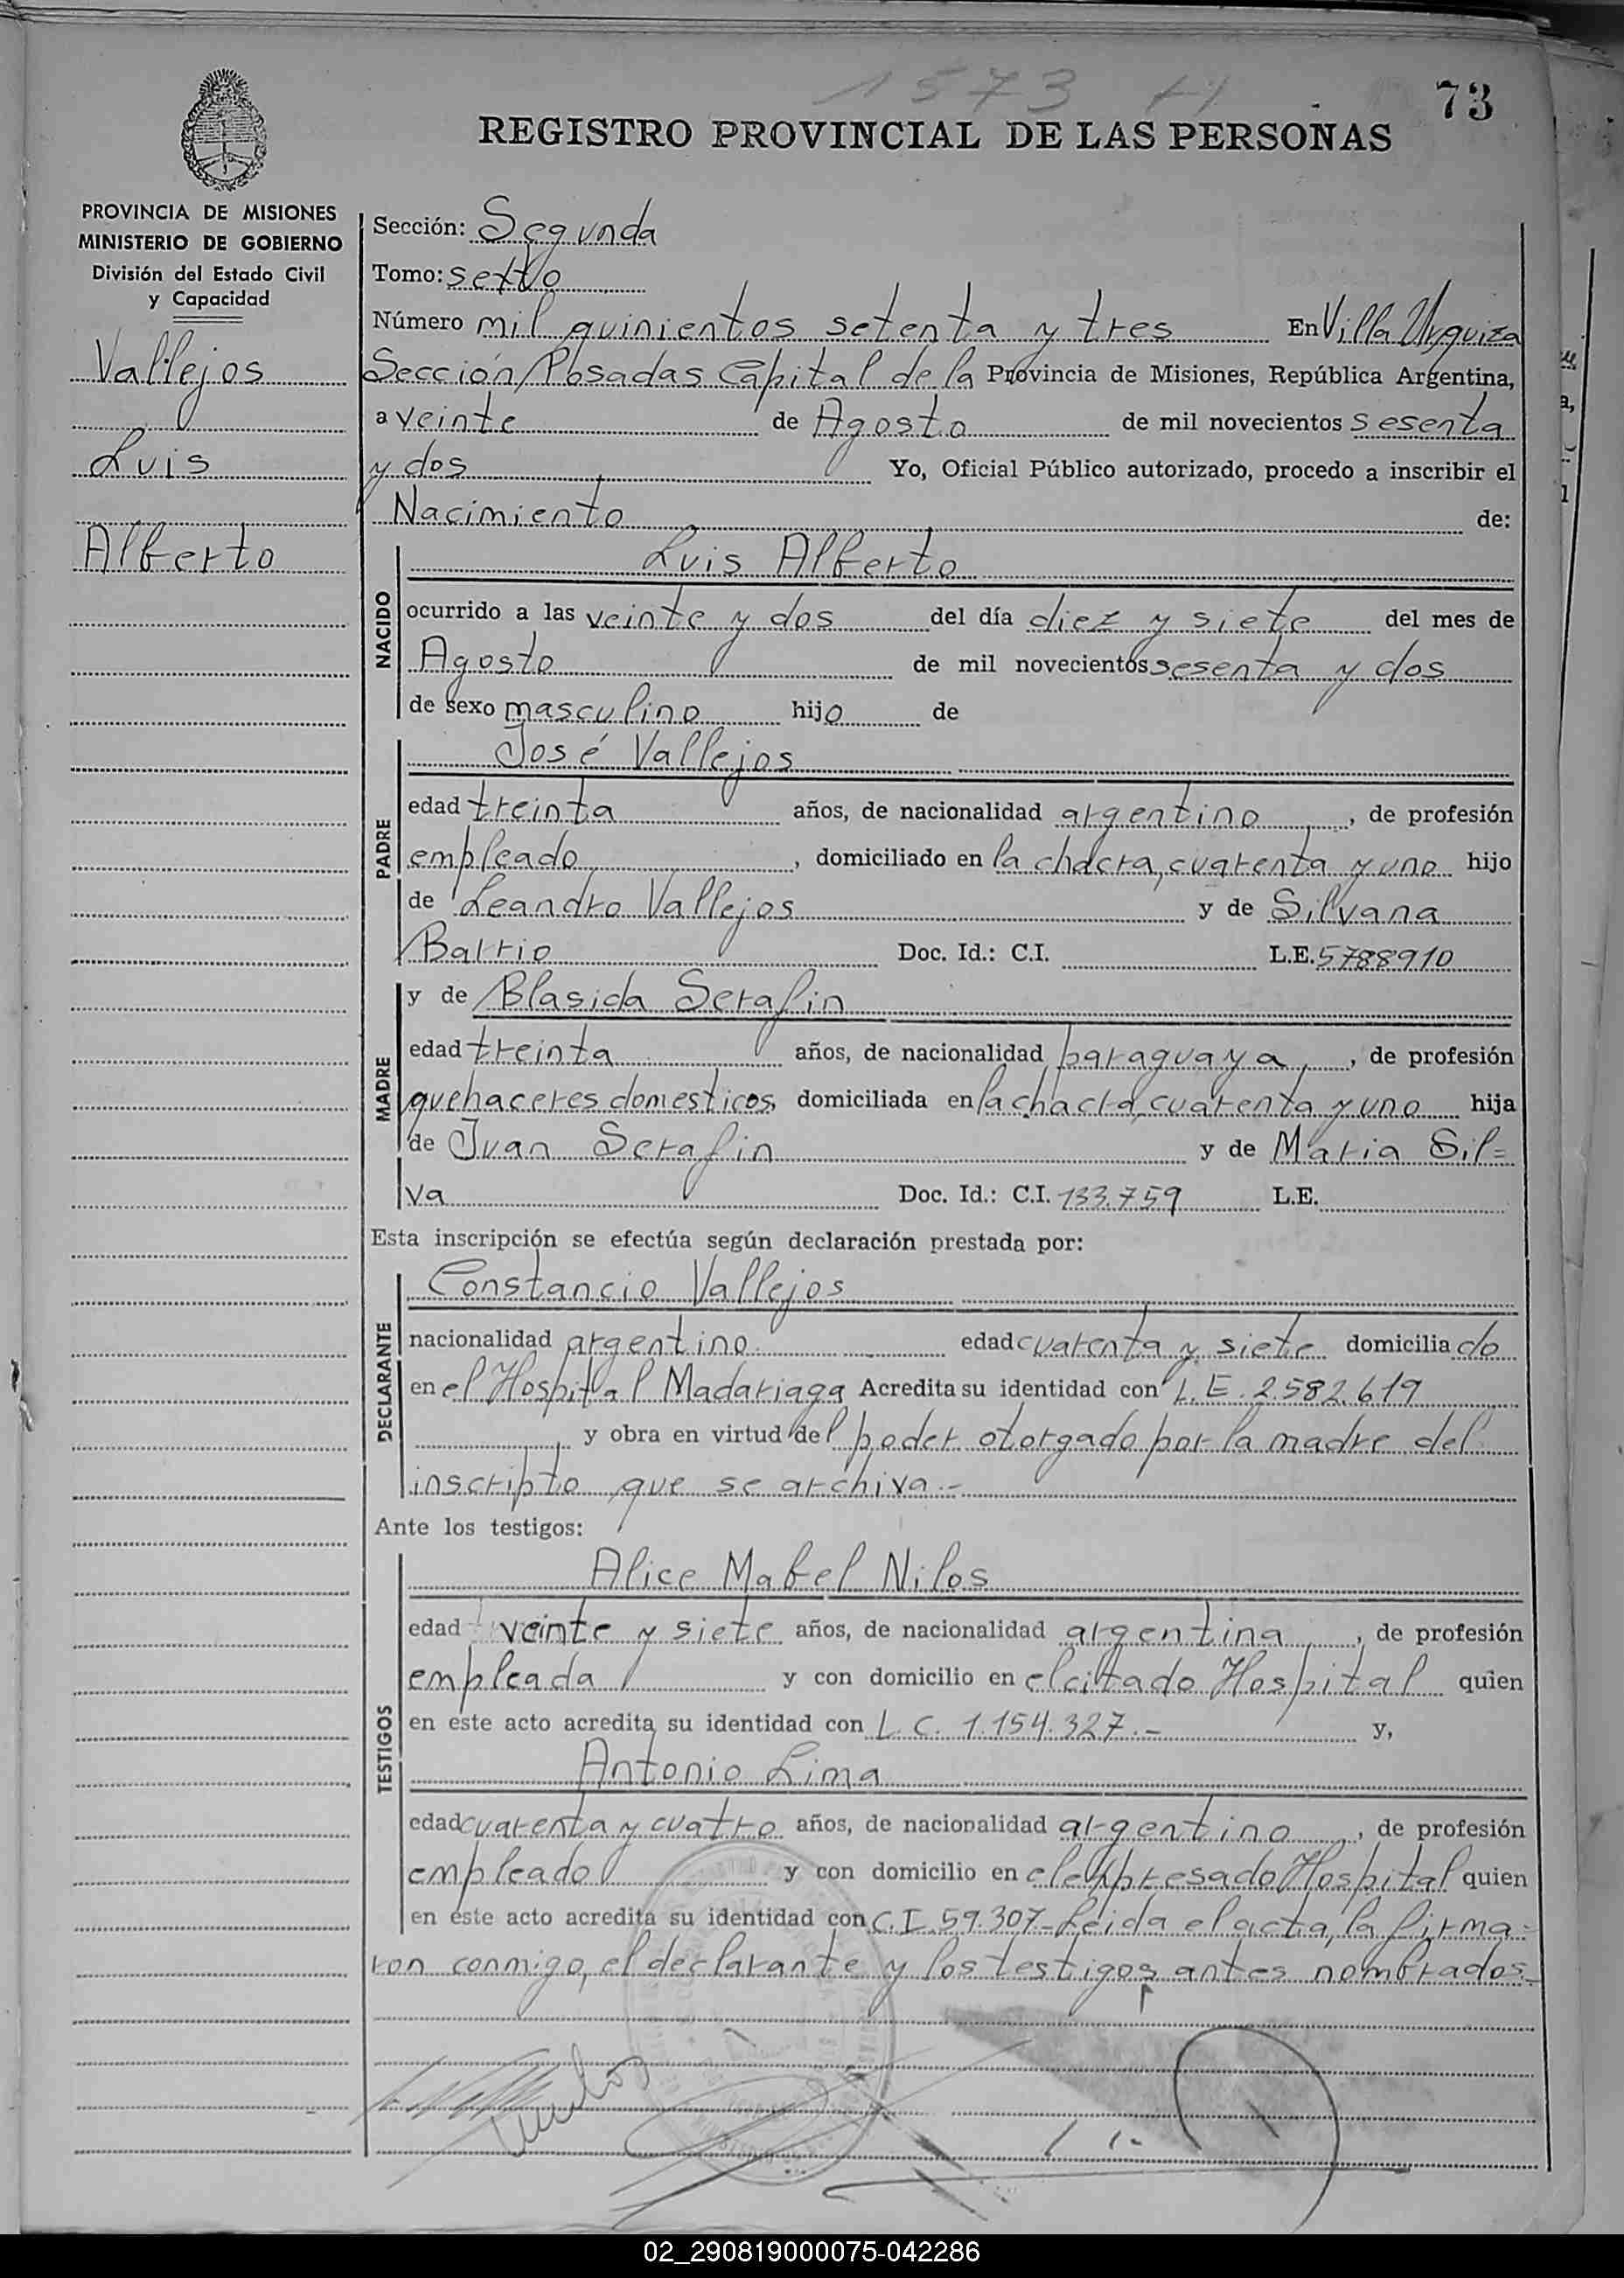 1573
73
REGISTRO PROVINCIAL DE LAS PERSONAS
PROVINCIA DE MISIONES
MINISTERIO DE GOBIERNO
División del Estado Civil
y Capacidad
Vallejos
Luis
Alberto
Sección: Segunda
Tomo: sexto
Número mil quinientos setenta y tres En Villa Urquiza
Sección Posadas Capital de la Provincia de Misiones, República Argentina,
a veinte de Agosto de mil novecientos sesenta
y dos Yo, Oficial Público autorizado, procedo a inscribir el
Nacimiento de:
NACIDO
Luis Alberto
ocurrido a las veinte y dos del día diez y siete del mes de
Agosto de mil novecientos sesenta y dos
de sexo masculino hijo de
PADRE
José Vallejos
edad treinta años, de nacionalidad argentino, de profesión
empleado, domiciliado en la chacra, cuarenta y uno hijo
de Leandro Vallejos y de Silvana
Barrio Doc. Id.: C.I. L.E. 5788910
MADRE
y de Blasida Serafin
edad treinta años, de nacionalidad paraguaya, de profesión
quehaceres domesticos, domiciliada en la chacra, cuarenta y uno hija
de Juan Serafin y de Maria Sil=
va Doc. Id.: C.I. 133.759 L.E.
Esta inscripción se efectúa según declaración prestada por:
DECLARANTE
Constancio Vallejos
nacionalidad argentino. edad cuarenta y siete domiciliado
en el Hospital Madariaga Acredita su identidad con L.E. 2.582.619
y obra en virtud del poder otorgado por la madre del
inscripto que se archiva.-
Ante los testigos:
TESTIGOS
Alice Mabel Nilos
edad veinte y siete años, de nacionalidad argentina, de profesión
empleada y con domicilio en el citado Hospital quien
en este acto acredita su identidad con L.C. 1.154.327.- y,
Antonio Lima
edad cuarenta y cuatro años, de nacionalidad argentino, de profesión
empleado y con domicilio en el expresado Hospital quien
en este acto acredita su identidad con C.I. 59.307- Leida el acta, la firma=
ron conmigo, el declarante y los testigos antes nombrados.-
02_290819000075-042286